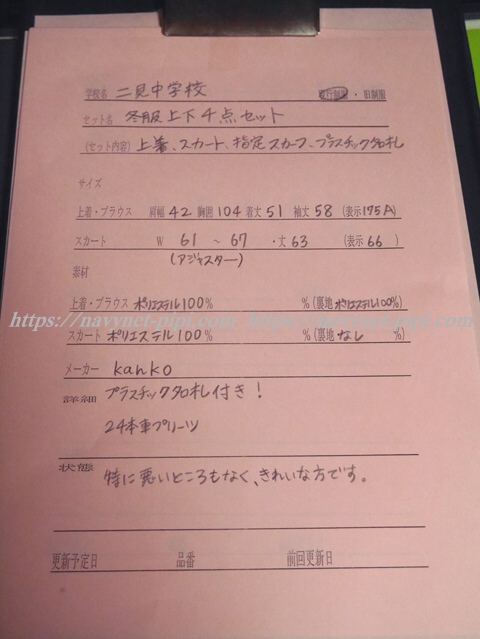 学校名 二見中学校 現行制服・旧制服
セット名 冬服上下4点セット
(セット内容) 上着、スカート、指定スカーフ、プラスチック名札
サイズ
上着・ブラウス 肩幅 42 胸囲 104 着丈 51 袖丈 58 (表示 175A)
スカート W 61 ～ 67 ・丈 63 (表示 66 )
(アジャスター)
素材
上着・ブラウス ポリエステル100% % (裏地 ポリエステル100%)
https://navynet-pipi.com https://navynet-pipi.com
スカート ポリエステル100% % (裏地 なし %)
メーカー kanko
詳細 プラスチック名札付き!
24本車プリーツ
状態 特に悪いところもなく、きれいな方です。
更新予定日 品番 前回更新日